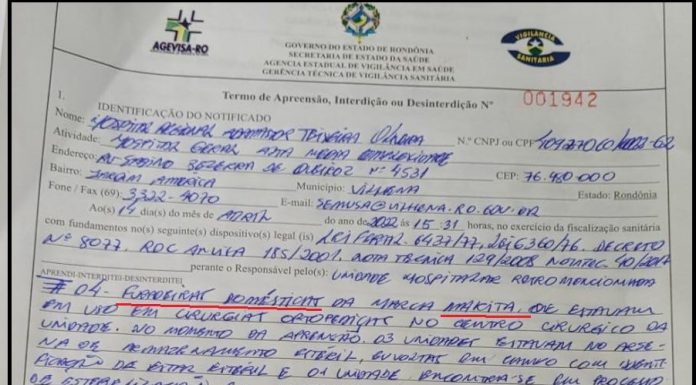 AGEVISA-RO
GOVERNO DO ESTADO DE RONDÔNIA
SECRETARIA DE ESTADO DA SAÚDE
AGENCIA ESTADUAL DE VIGILÂNCIA EM SAÚDE
GERÊNCIA TÉCNICA DE VIGILÂNCIA SANITÁRIA
VIGILÂNCIA SANITÁRIA
Termo de Apreensão, Interdição ou Desinterdição Nº 001942
1. IDENTIFICAÇÃO DO NOTIFICADO
Nome: HOSPITAL REGIONAL ADAMASTOR TEIXEIRA OLIVEIRA N.º CNPJ ou CPF
Atividade: HOSPITAL GERAL ALTA MÉDIA COMPLEXIDADE
Endereço: AV SABINO BEZERRA DE QUEIROZ Nº 4531 CEP: 76.980-000
Bairro: JARDIM AMÉRICA Município: VILHENA Estado: Rondônia
Fone / Fax (69): 3322-4070 E-mail: SEMUSA@VILHENA.RO.GOV.BR
Ao(s) 14 dia(s) do mês de ABRIL do ano de 2022 às 15:31 horas, no exercício da fiscalização sanitária
com fundamentos no(s) seguinte(s) dispositivo(s) legal (is) LEI FEDERAL 6437/77, LEI 6360/76. DECRETO
Nº 8077, RDC ANVISA 185/2001. NOTA TÉCNICA 129/2008
perante o Responsável pelo(s): UNIDADE HOSPITALAR RETRO MENCIONADA
APREENDI-INTERDITEI-DESINTERDITEI
# 04 - FURADEIRAS DOMÉSTICAS DA MARCA MAKITA, QUE ESTAVAM
EM USO EM CIRURGIAS ORTOPÉDICAS NO CENTRO CIRÚRGICO DA
UNIDADE. NO MOMENTO DA APREENSÃO. 03 UNIDADES ESTAVAM NO ARSE-
NAL DE ARMAZENAMENTO ESTÉRIL, ENVOLTAS EM CAMPO COM IDENTI-
FICAÇÃO DE ESTAR ESTÉRIL E 01 UNIDADE ENCONTRA-SE EM PROCESSO